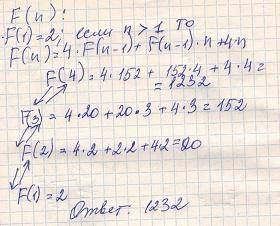 F(n):
F(1)=2; если n > 1 то
F(n)=4·F(n-1)+F(n-1)·n+4n
F(4)=4·152+152·4+4·4=
=1232
F(3)=4·20+20·3+4·3=152
F(2)=4·2+2·2+42=20
F(1)=2
Ответ. 1232